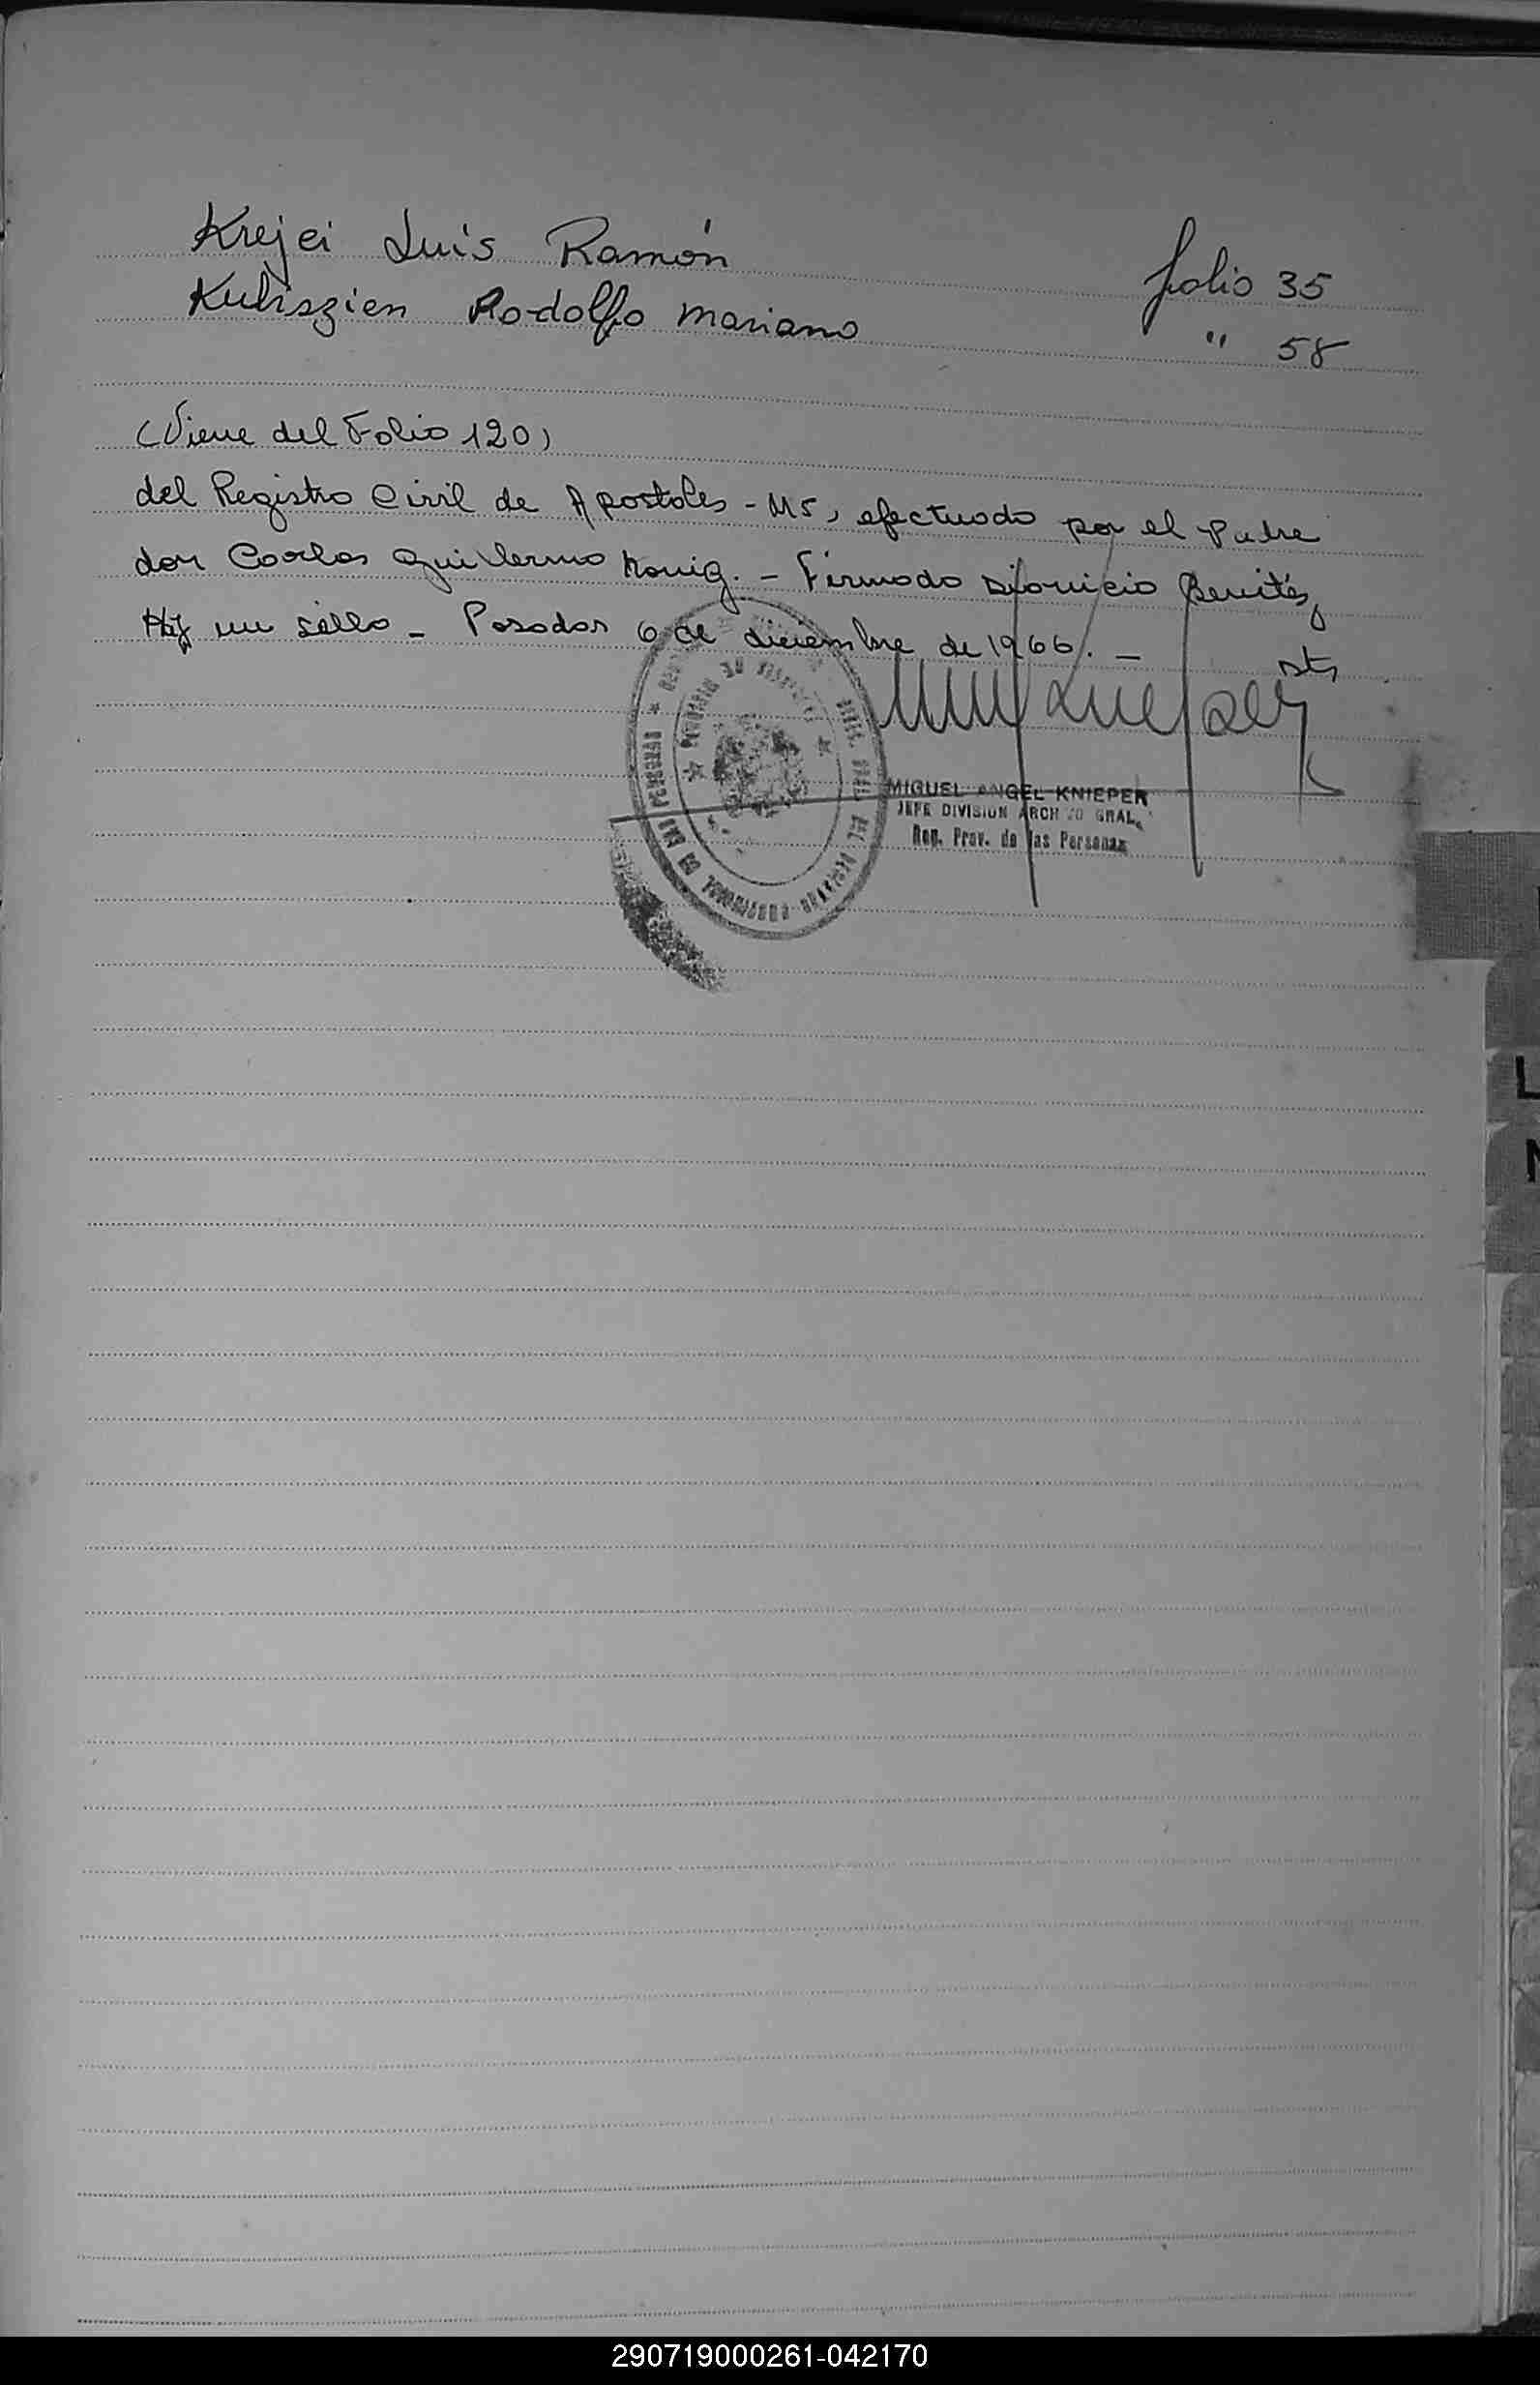 Krejci Luis Ramón folio 35
Kuliszien Rodolfo Mariano " 58
(Viene del Folio 120)
del Registro Civil de Apostoles - Ms, efectuado por el padre
don Carlos Guillermo Konig. - Firmado Dionicio Benítez
Hay un sello - Posadas 6 de diciembre de 1966. -
MIGUEL ANGEL KNIEPER
JEFE DIVISION ARCHIVO GRAL.
Reg. Prov. de las Personas
L
N
290719000261-042170